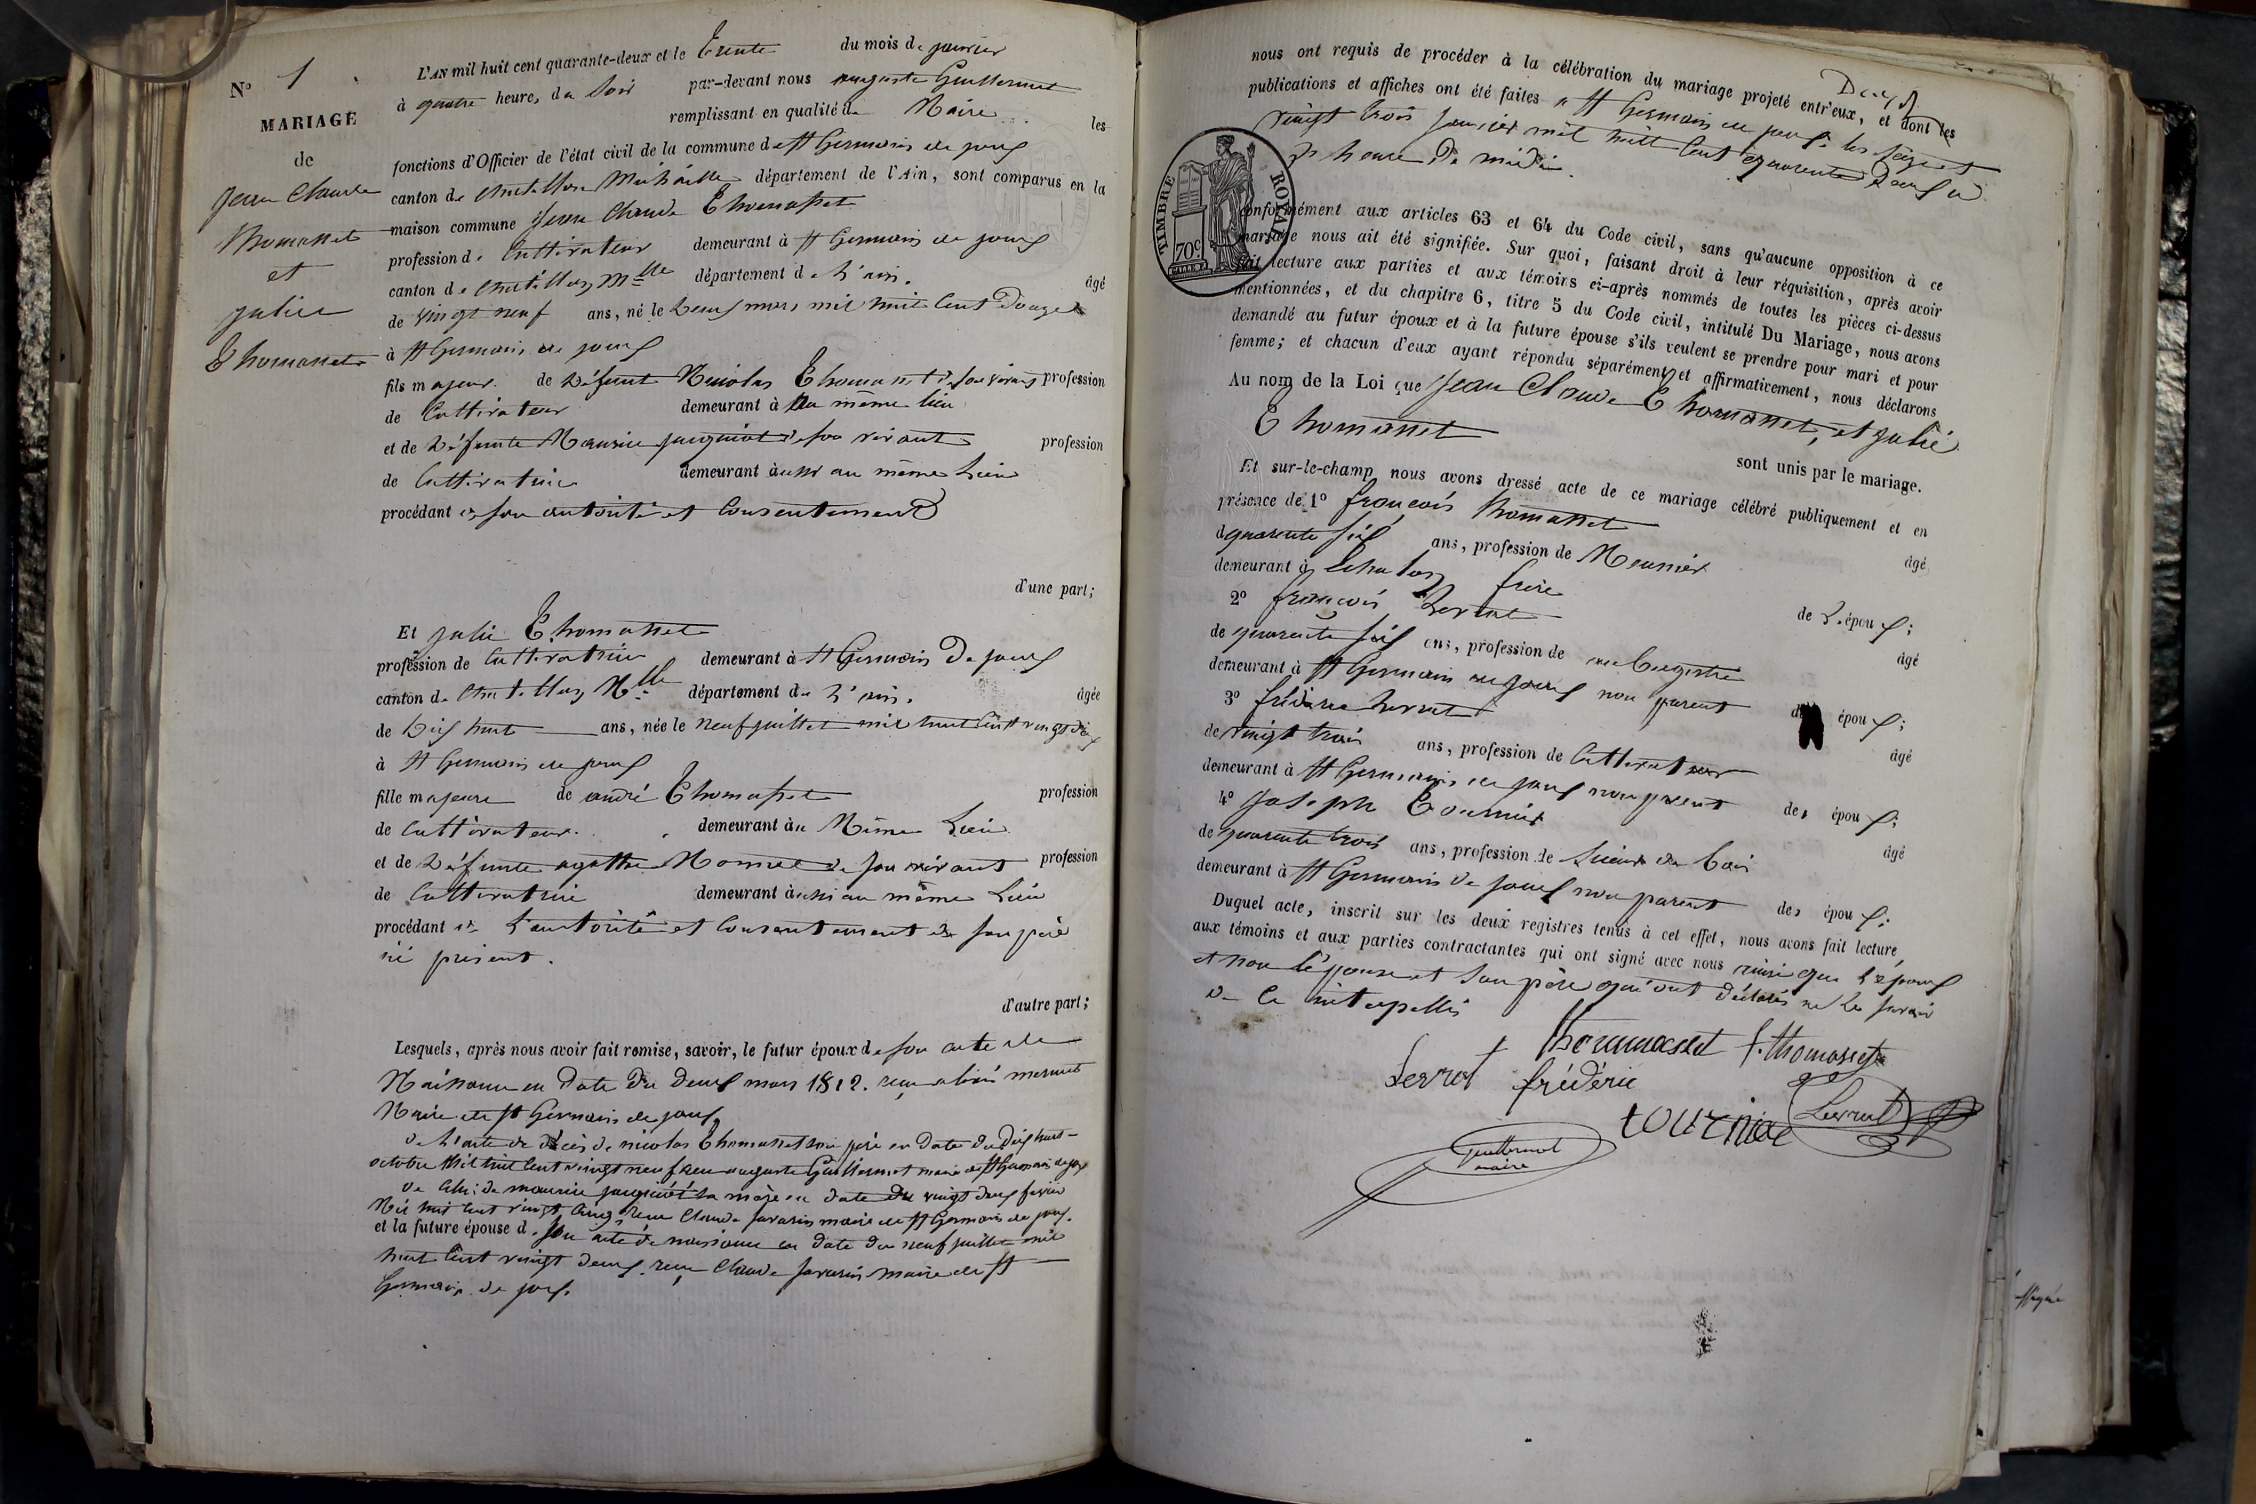 N° 1
MARIAGE
de
Jean Claude
Thomasset
et
julie
Thomasset
L'AN mil huit cent quarante-deux et le Trente du mois de janvier
à quatre heures du Soir par-devant nous auguste Guillermet
remplissant en qualité de Maire les
fonctions d'Officier de l'état civil de la commune de St Germain de joux
canton de Chatillon Michaille département de l'Ain, sont comparus en la
maison commune Jean Claude Thomasset
profession de Cultivateur demeurant à St Germain de joux
canton de Chatillon Mlle département de L'ain. âgé
de vingt neuf ans, né le Deux mars mil huit Cent Douze
à St Germain de joux
fils majeur de Défunt Nicolas Thomasset de son vivant profession
de Cultivateur demeurant à au même lieu
et de Défunte Maurise jacquiot de son vivant profession
de Cultivatrice demeurant à aussi au même Lieu
procédant de son autorité et Consentement
d'une part;
Et julie Thomasset
profession de Cultivatrice demeurant à St Germain De joux
canton de Chatillon Mlle département de L'ain. âgée
de Dix huit ans, née le neuf juillet mil huit Cent vingt
à St Germain de joux
fille majeure de andré Thomasset profession
de Cultivateur. demeurant à au Même Lieu
et de Défunte agathe Monnet de son vivant profession
de Cultivatrice demeurant à aussi au même Lieu
procédant de L'autorité et Consentement de son père
ici présent.
d'autre part;
Lesquels, après nous avoir fait remise, savoir, le futur époux de son acte de
Naissance en Date Du Deux mars 1812. reçu mermet
Maire de St Germain de joux
De L'acte de décès de nicolas Thomasset son père en Date du Dix huit
octobre Mil huit Cent vingt neuf reçu auguste Guillermet maire de St Germain de joux
De Celui de maurise jacquiot sa mère en Date du vingt deux fevrier
Mil huit Cent vingt Cinq reçu Claude Savarin maire de St Germain de joux.
et la future épouse de son acte de naissance en Date du neuf juillet mil
huit Cent vingt Deux. reçu Claude Savarin Maire de St
Germain de joux.
nous ont requis de procéder à la célébration du mariage projeté entr'eux, et dont les
publications et affiches ont été faites à St Germain de joux les seize et
vingt trois Janvier mil huit Cent quarante Deux à
heure De midi.
TIMBRE ROYAL
70c.
conformément aux articles 63 et 64 du Code civil, sans qu'aucune opposition à ce
mariage nous ait été signifiée. Sur quoi, faisant droit à leur réquisition, après avoir
fait lecture aux parties et aux témoins ci-après nommés de toutes les pièces ci-dessus
mentionnées, et du chapitre 6, titre 5 du Code civil, intitulé Du Mariage, nous avons
demandé au futur époux et à la future épouse s'ils veulent se prendre pour mari et pour
femme; et chacun d'eux ayant répondu séparément et affirmativement, nous déclarons
Au nom de la Loi que Jean Claude Thomasset, et julie
Thomasset
sont unis par le mariage.
Et sur-le-champ nous avons dressé acte de ce mariage célébré publiquement et en
présence de 1° françois Thomasset âgé
de quarante six ans, profession de Meunier
demeurant à Echalon frère de L'époux;
2° françois Levrat âgé
de quarante six ans, profession de aubergiste
demeurant à St Germain de joux non parent des époux;
3° frédéric Levrat âgé
de vingt trois ans, profession de Cultivateur
demeurant à St Germain de joux non parent des époux;
4° Joseph Tournier âgé
de quarante trois ans, profession de Scieur de bois
demeurant à St Germain de joux non parent des époux;
Duquel acte, inscrit sur les deux registres tenus à cet effet, nous avons fait lecture
aux témoins et aux parties contractantes qui ont signé avec nous ainsi que L'époux
et non L'épouse et Son père qui ont déclarés ne Le savoir
De Ce interpellés
Thomasset f. thomasset
Levrat frédéric
tournier Levrat
Guillermet
maire